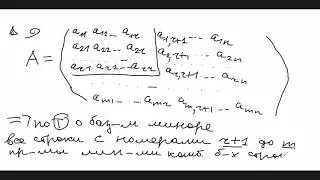 a₁₁ a₁₂ ... a₁r a₁,r+1 ... a₁n
a₂₁ a₂₂ ... a₂r a₂,r+1 ... a₂n
A =
ar₁ ar₂ ... arr ar,r+1 ... arn
am₁ ... amr am,r+1 ... amn
=> по Т о баз-м миноре
все строки с номерами r+1 до m
пр-мы лин-ми комб. б-х строк